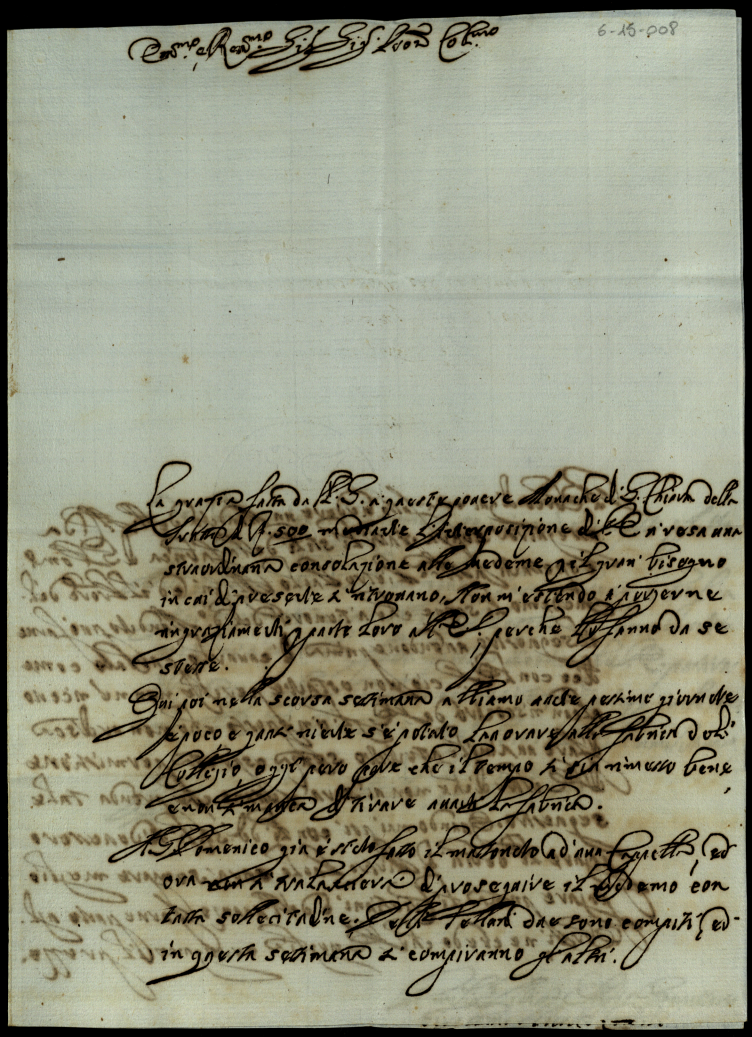 6-15-008
Em.mo e Rev.mo Sig. Sig. Pron Col.mo
La grazia fatta da V. E. a queste povere Monache di S. Chiara della
500 mediante l'Interposizione di V. E. resa una
straordinaria consolazione alle medeme p il gran bisogno
in cui di presente si ritrovano. Non m'estendo a porgerne
ringraziamenti p parte loro all' E. V. perche lo fanno da se
stesse.
Qui poi nella scorsa settimana abbiamo avute pessime giornate
e poco e quasi niente s'è potuto lavorare alla fabrica dol
Collegio, oggi pero pare che il tempo si sia rimesso bene
e non si manca di tirare avanti la fabrica.
A S. Domenico gia è stato fatto il mattonato ad una Cappella, ed
ora non si tralascierà di proseguire il medemo con
tutta sollecitudine. Delli due sono compiti, ed
in questa settimana si compiranno gl'altri.